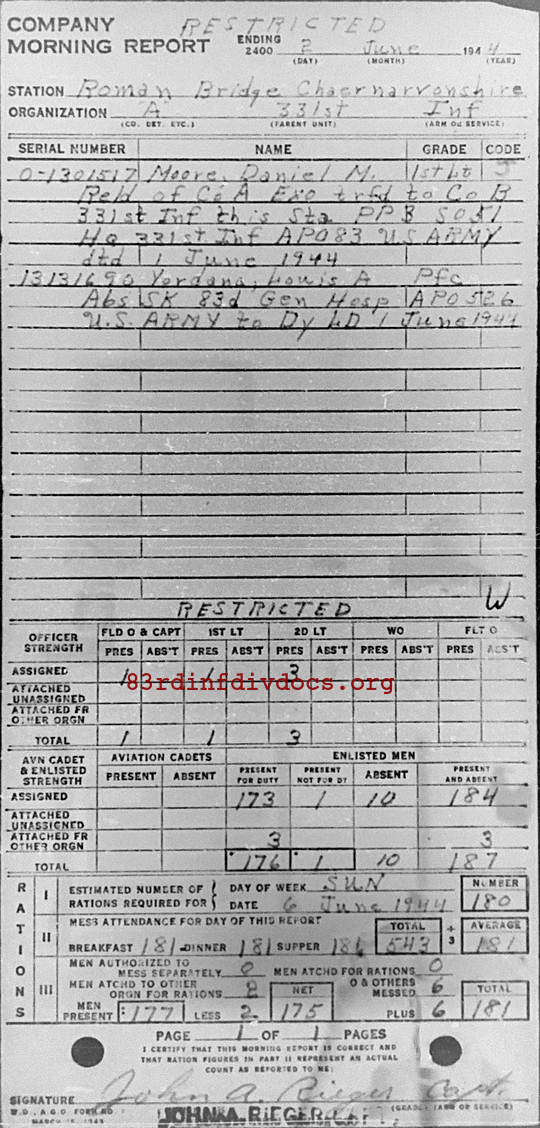 RESTRICTED
COMPANY
MORNING REPORT ENDING 2400 2 June 1944
(DAY) (MONTH) (YEAR)
STATION Roman Bridge Chaernarvonshire
ORGANIZATION "A" 331st Inf
(CO. DET. ETC.) (PARENT UNIT) (ARM OR SERVICE)
SERIAL NUMBER NAME GRADE CODE
O-1301517 Moore, Daniel M. 1st Lt 5
Reld of Co A Exo trfd to Co B
331st Inf this Sta PP3 SO51
Hq 331st Inf APO83 US ARMY
dtd 1 June 1944
13131690 Yordana, Louis A Pfc
Abs SK 83d Gen Hosp APO 526
U.S. ARMY to Dy LD 1 June 1944
RESTRICTED W
OFFICER STRENGTH FLD O & CAPT 1ST LT 2D LT WO FLT O
PRES ABS'T PRES ABS'T PRES ABS'T PRES ABS'T PRES ABS'T
ASSIGNED 1 1 3
83rdinfdivdocs.org
ATTACHED UNASSIGNED
ATTACHED FR OTHER ORGN
TOTAL 1 1 3
AVN CADET & ENLISTED STRENGTH AVIATION CADETS ENLISTED MEN
PRESENT ABSENT PRESENT FOR DUTY PRESENT NOT FOR DY ABSENT PRESENT AND ABSENT
ASSIGNED 173 1 10 184
ATTACHED UNASSIGNED
ATTACHED FR OTHER ORGN 3 3
TOTAL 176 1 10 187
RATIONS
I ESTIMATED NUMBER OF RATIONS REQUIRED FOR DAY OF WEEK SUN NUMBER
DATE 6 June 1944 180
II MESS ATTENDANCE FOR DAY OF THIS REPORT TOTAL ÷ 3 AVERAGE
BREAKFAST 181 DINNER 181 SUPPER 181 543 181
III MEN AUTHORIZED TO MESS SEPARATELY 0 MEN ATCHD FOR RATIONS 0
MEN ATCHD TO OTHER ORGN FOR RATIONS 2 NET O & OTHERS MESSED 6 TOTAL
MEN PRESENT 177 LESS 2 175 PLUS 6 181
PAGE 1 OF 1 PAGES
I CERTIFY THAT THIS MORNING REPORT IS CORRECT AND
THAT RATION FIGURES IN PART II REPRESENT AN ACTUAL
COUNT AS REPORTED TO ME:
SIGNATURE John A. Rieger Capt.
W.D., A.G.O. FORM NO. 1 (GRADE) (ARM OR SERVICE)
MARCH 15, 1943 JOHN A. RIEGER, CAPT.